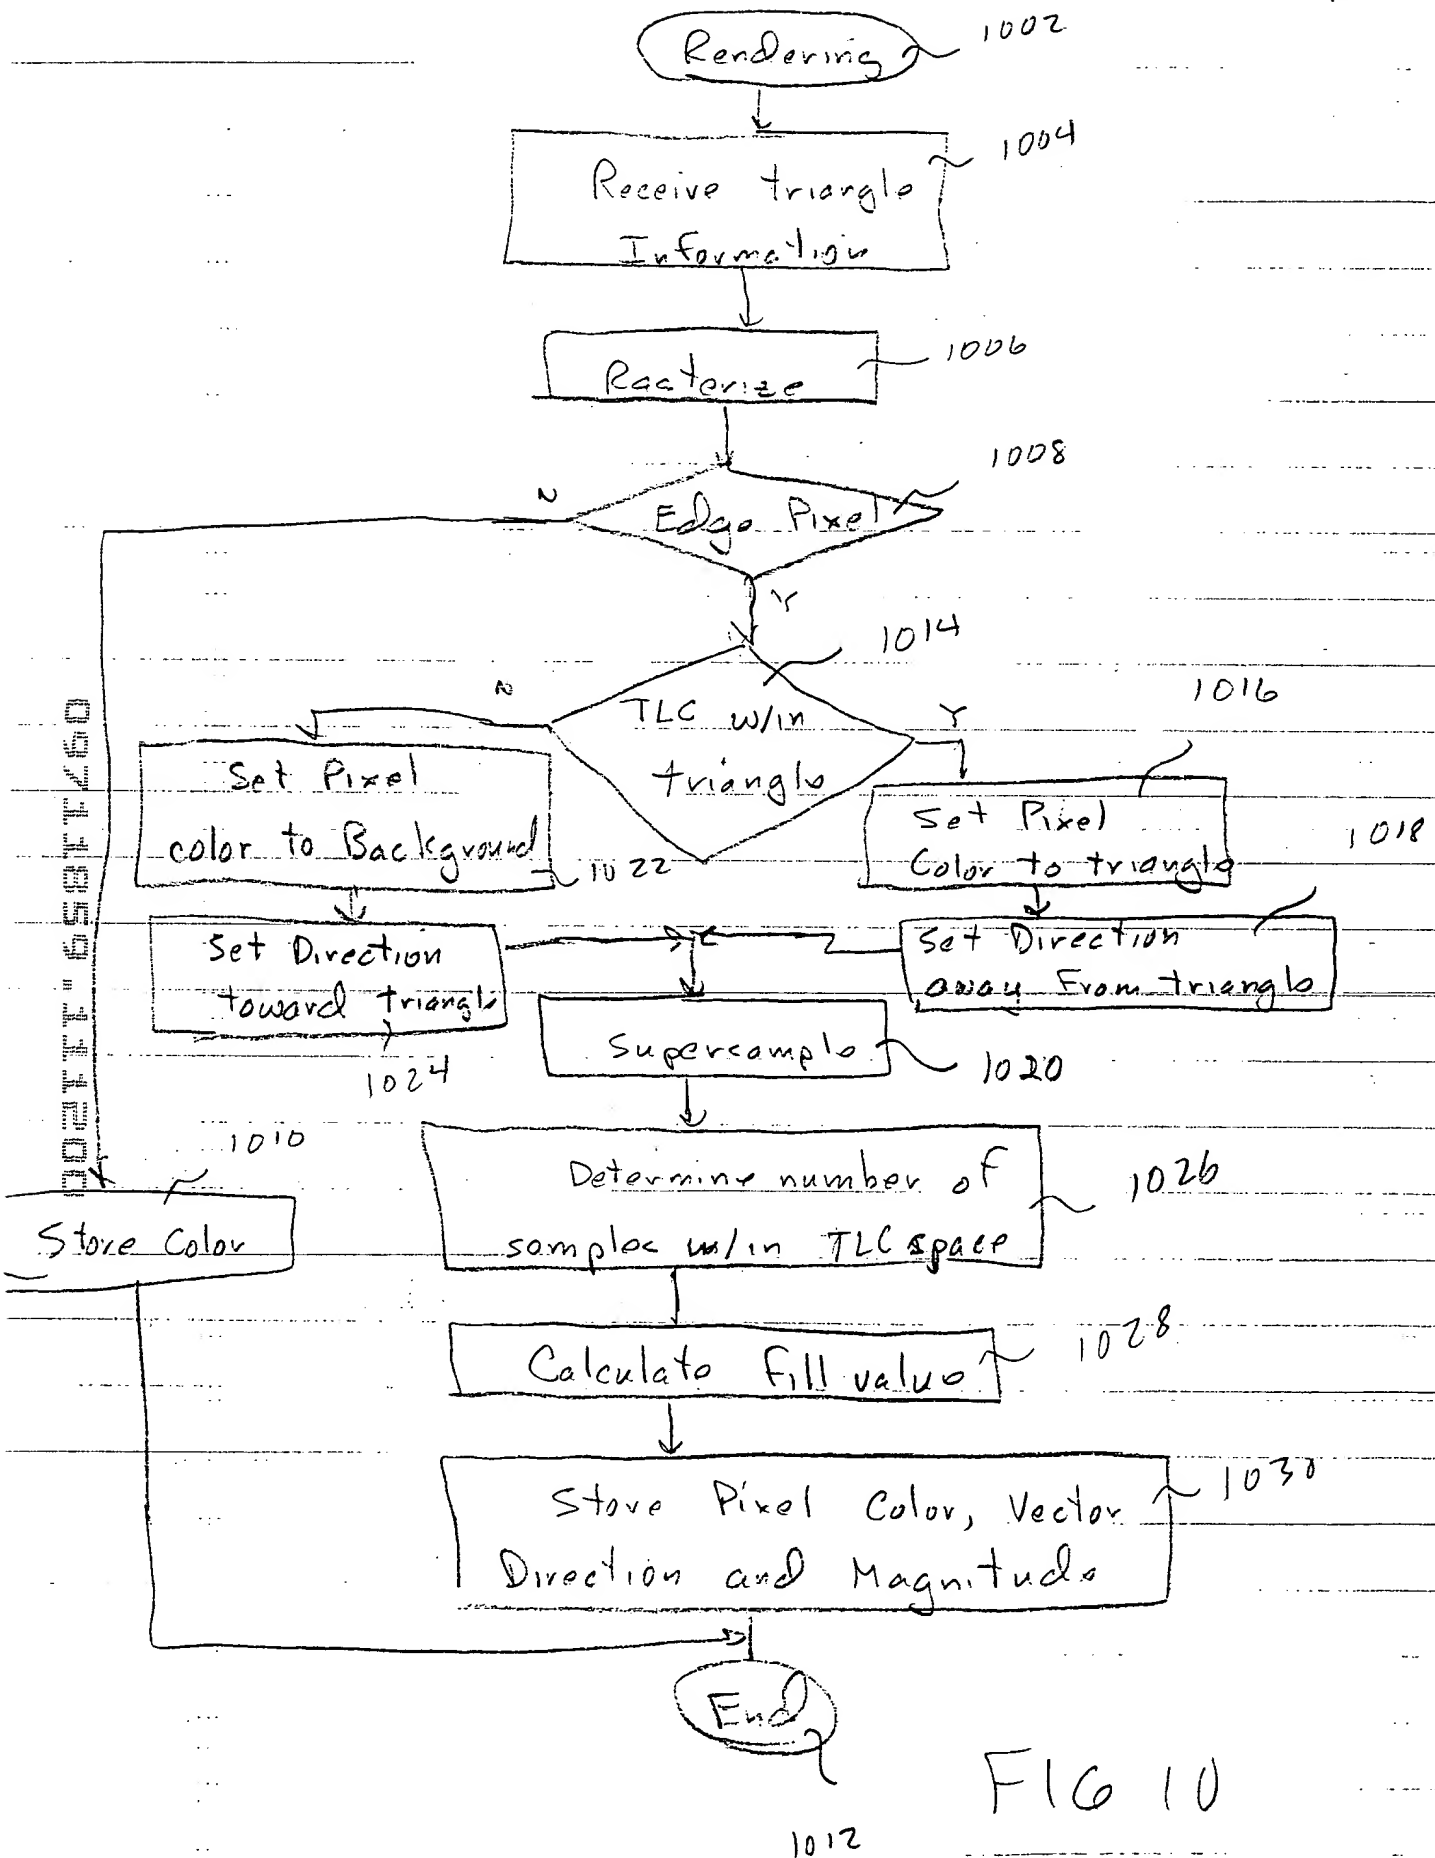 Rendering
1002
Receive triangle
Information
1004
Rasterize
1006
Edge Pixel
1008
N
Y
TLC w/in
triangle
1014
N
Y
Set Pixel
color to Background
1022
Set Pixel
Color to triangle
1016
Set Direction
toward triangle
1024
Set Direction
away From triangle
1018
Supersample
1020
Determine number of
samples w/in TLC space
1026
Store Color
1010
Calculate Fill value
1028
Store Pixel Color, Vector
Direction and Magnitude
1030
End
1012
FIG 10
09711856.111200